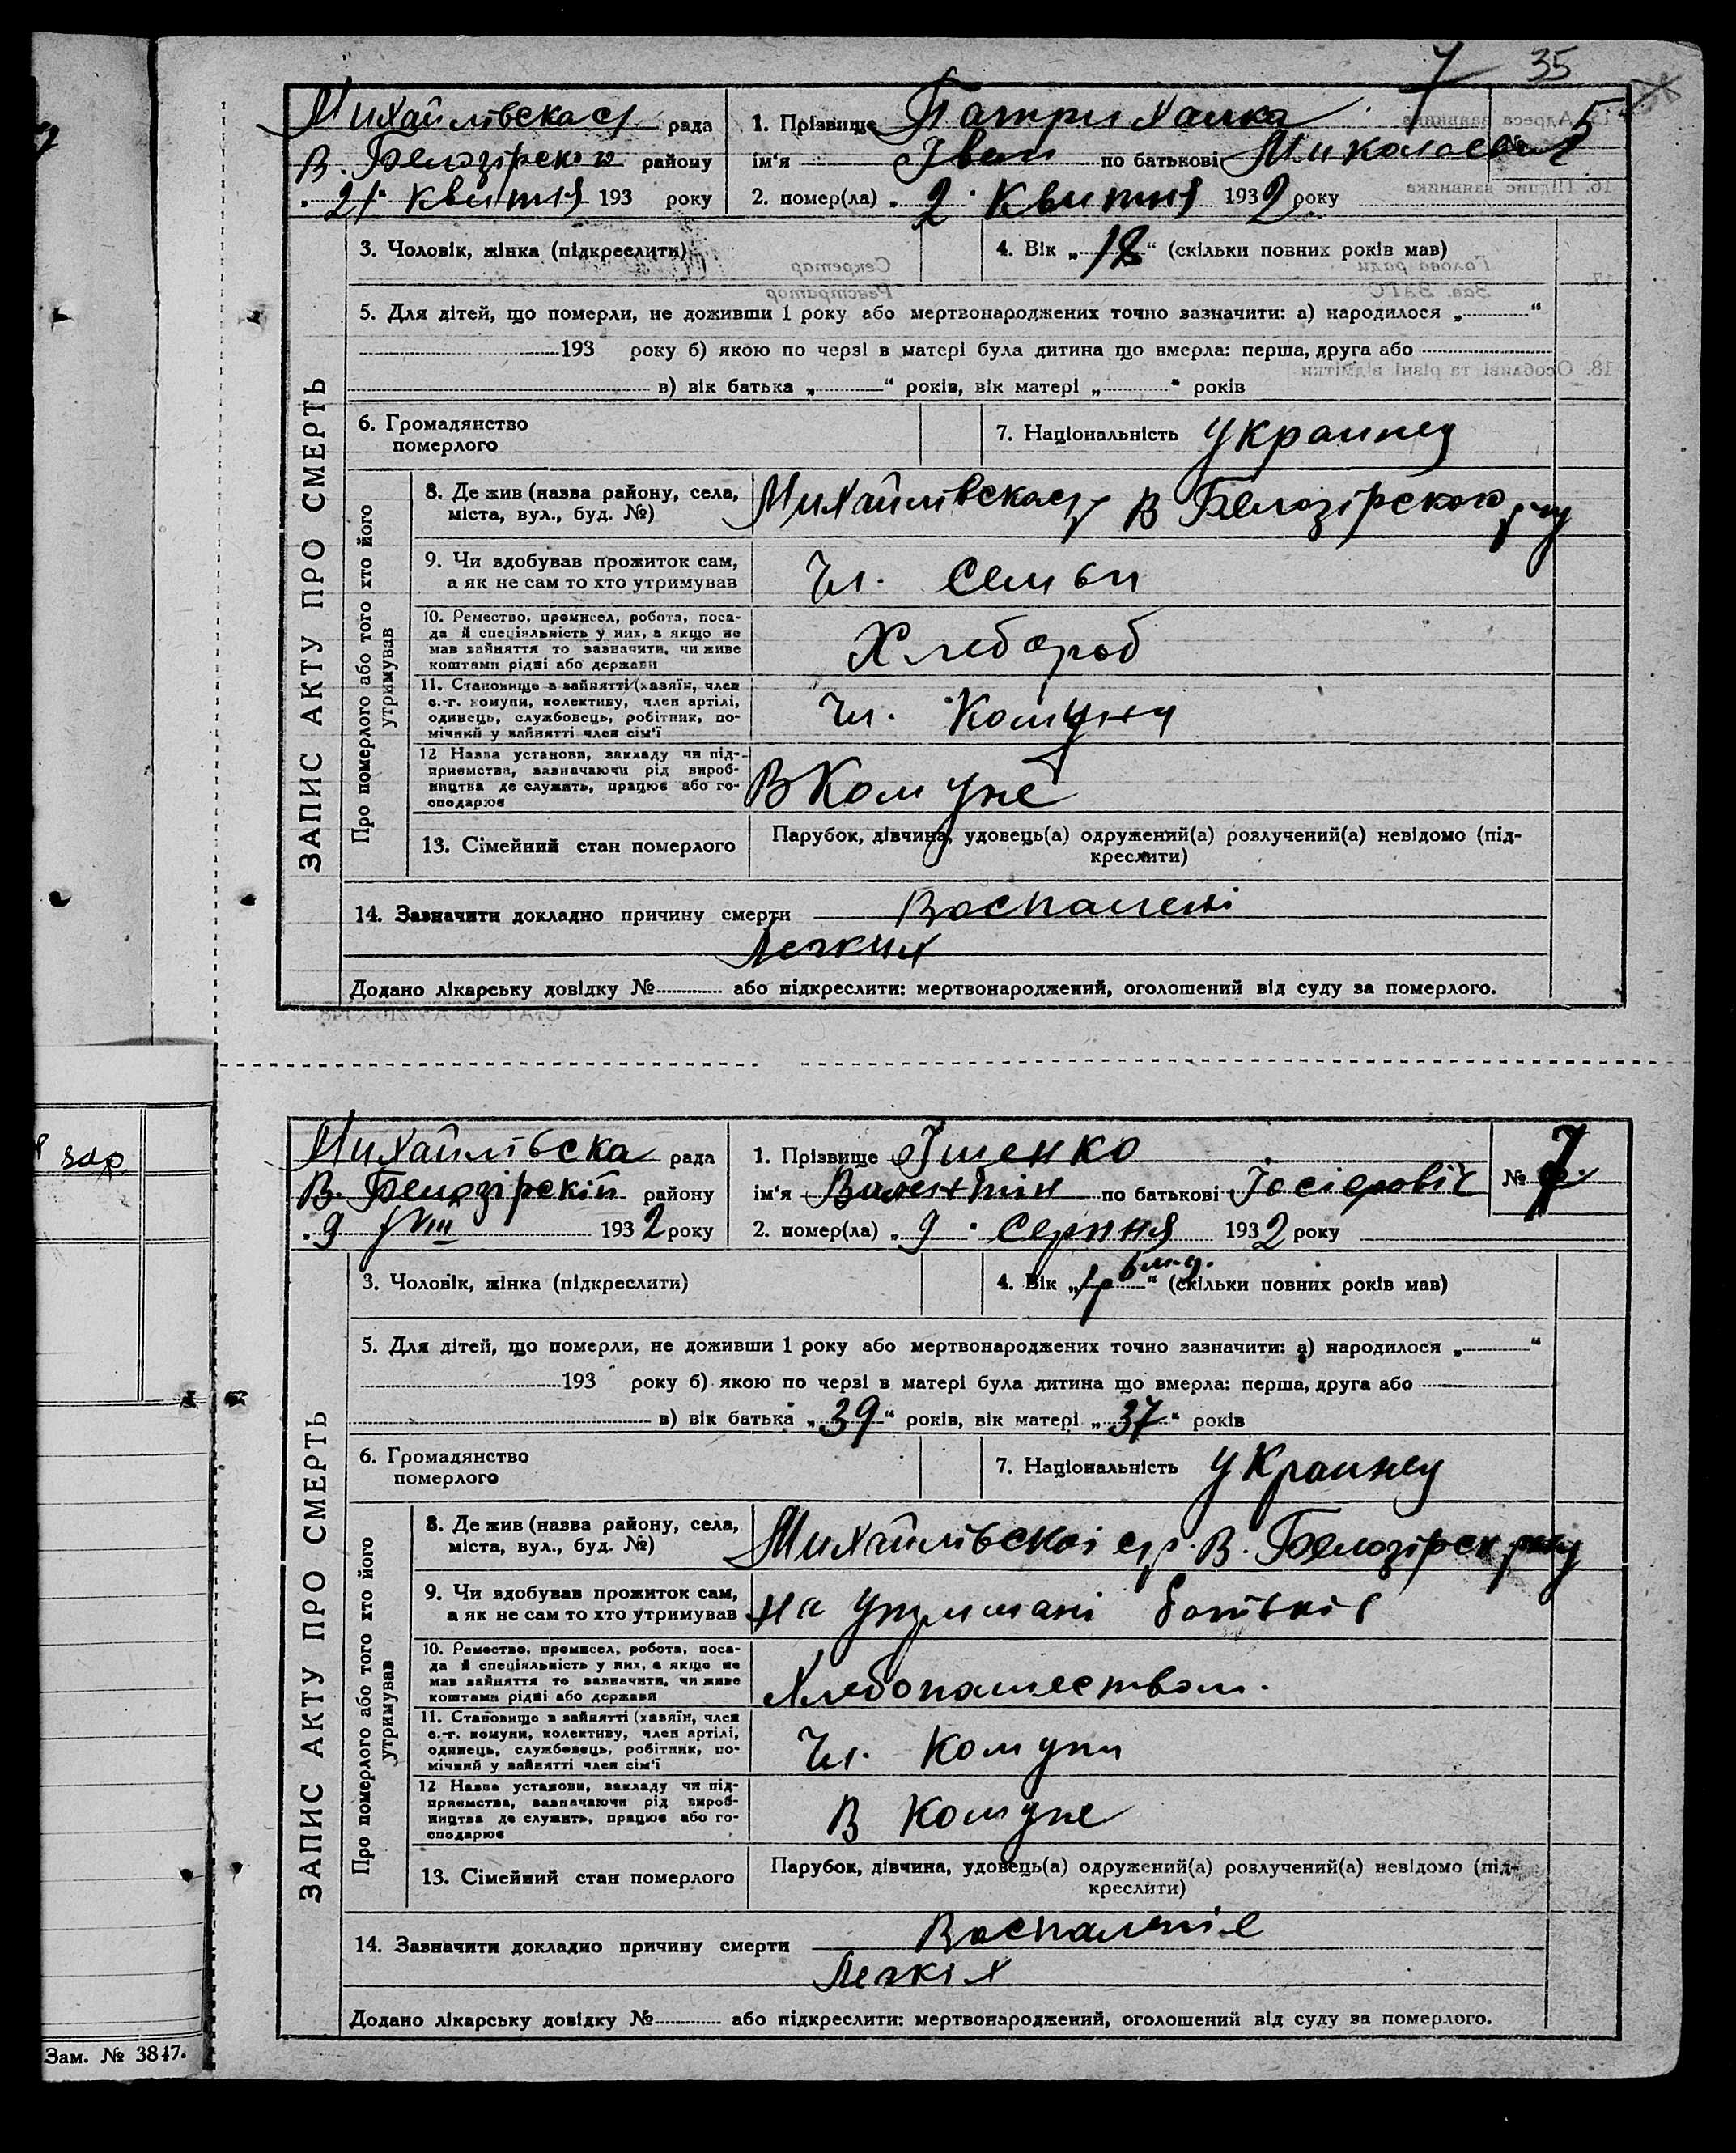 7 35
Михайлівска с/ рада
В. Белозірского району
„21" квітня 193 року
1. Прізвище Патрихалка
ім'я Іван по батькові Миколаевич
№ 5
2. помер(ла) „2" квитня 1932 року
3. Чоловік, жінка (підкреслити)
4. Вік „18" (скільки повних років мав)
5. Для дітей, що померли, не доживши 1 року або мертвонароджених точно зазначити: а) народилося „ "
193 року б) якою по черзі в матері була дитина що вмерла: перша, друга або
в) вік батька „ " років, вік матері „ " років
6. Громадянство
померлого
7. Національність Украинец
ЗАПИС АКТУ ПРО СМЕРТЬ
Про померлого або того хто його
утримував
8. Де жив (назва району, села,
міста, вул., буд. №)
Михайлівска В Белозірского р-ну
9. Чи здобував прожиток сам,
а як не сам то хто утримував
Чл. семьи
10. Ремество, промисел, робота, поса-
да й спеціяльність у них, а якщо не
мав зайняття то зазначити, чи живе
коштами рідні або держави
Хлебороб
11. Становище в зайнятті (хазяїн, член
с.-г. комуни, колективу, член артілі,
одинець, службовець, робітник, по-
мічний у зайнятті член сім'ї
Чл. Комуни
12 Назва установи, закладу чи під-
приємства, зазначаючи рід вироб-
ництва де служить, працює або го-
сподарює
В Комуне
13. Сімейний стан померлого
Парубок, дівчина, удовець(а) одружений(а) розлучений(а) невідомо (під-
креслити)
14. Зазначити докладно причину смерти Воспалені
Легких
Додано лікарську довідку № або підкреслити: мертвонароджений, оголошений від суду за померлого.
Михайлівска рада
В. Белозірскій району
„9 VIII 1932 року
1. Прізвище Іщенко
ім'я Валентін по батькові Іосіфовіч
№ 7
2. помер(ла) „9" серпня 1932 року
3. Чоловік, жінка (підкреслити)
4. Вік „1р 6 м-ц." (скільки повних років мав)
5. Для дітей, що померли, не доживши 1 року або мертвонароджених точно зазначити: а) народилося „ "
193 року б) якою по черзі в матері була дитина що вмерла: перша, друга або
в) вік батька „39" років, вік матері „37" років
6. Громадянство
померлого
7. Національність Украинец
ЗАПИС АКТУ ПРО СМЕРТЬ
Про померлого або того хто його
утримував
8. Де жив (назва району, села,
міста, вул., буд. №)
Михайлівскоі с/р. В. Белозірск р-ну
9. Чи здобував прожиток сам,
а як не сам то хто утримував
на утримані батьків
10. Ремество, промисел, робота, поса-
да й спеціяльність у них, а якщо не
мав зайняття то зазначити, чи живе
коштами рідні або держави
Хлебопашеством.
11. Становище в зайнятті (хазяїн, член
с.-г. комуни, колективу, член артілі,
одинець, службовець, робітник, по-
мічний у зайнятті член сім'ї
Чл. Комуни
12 Назва установи, закладу чи під-
приємства, зазначаючи рід вироб-
ництва де служить, працює або го-
сподарює
В Комуне
13. Сімейний стан померлого
Парубок, дівчина, удовець(а) одружений(а) розлучений(а) невідомо (під-
креслити)
14. Зазначити докладно причину смерти Воспаленіе
Легкіх
Додано лікарську довідку № або підкреслити: мертвонароджений, оголошений від суду за померлого.
Зам. № 3847.